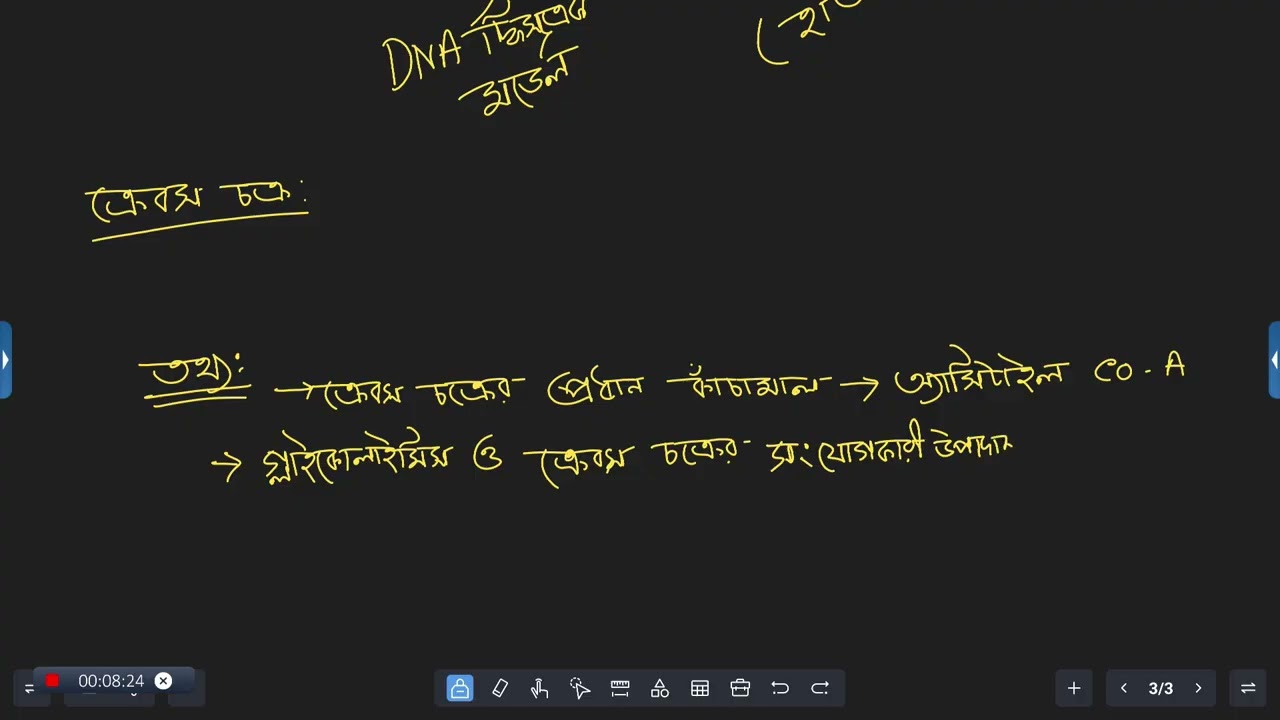 DNA
মডেল
ক্রেবস চক্র:
তথ্য:
→ ক্রেবস চক্রের প্রধান কাঁচামাল → অ্যাসিটাইল CO-A
→ গ্লাইকোলাইসিস ও ক্রেবস চক্রের সংযোগকারী উপাদান
00:08:24
3/3